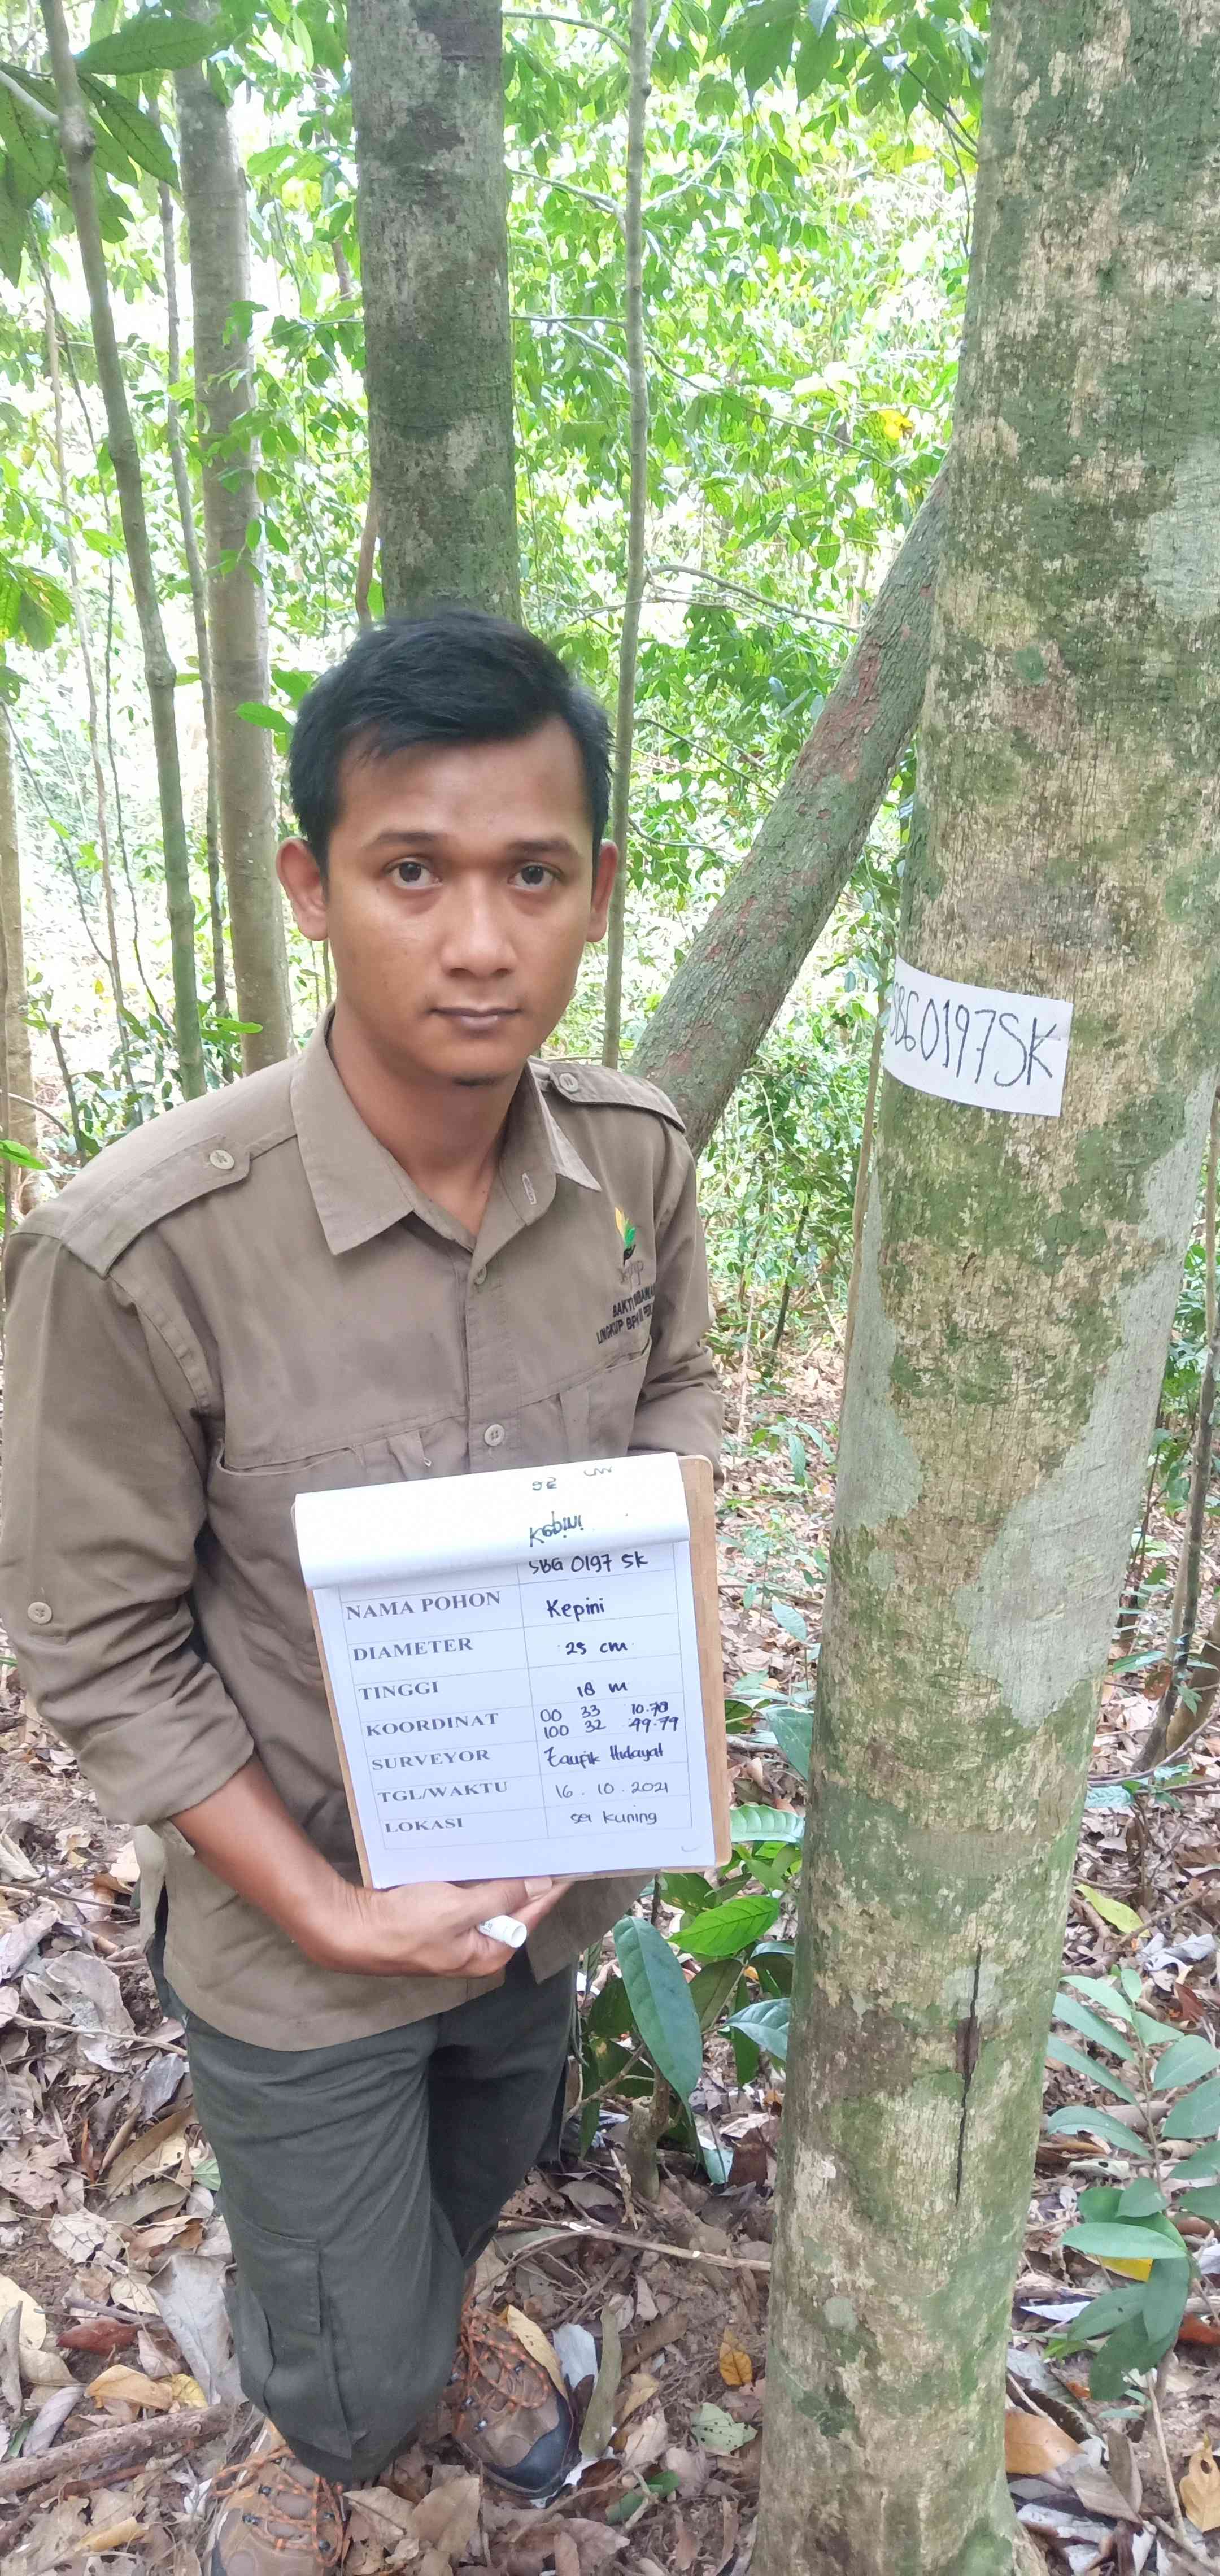 SBG0197SK
BAKTI
LINGKUP
Kepini
SBG 0197 SK
NAMA POHON Kepini
DIAMETER 25 cm
TINGGI 18 m
KOORDINAT 00 33 10.78
100 32 49.79
SURVEYOR Taufik Hidayat
TGL/WAKTU 16.10.2021
LOKASI sei kuning